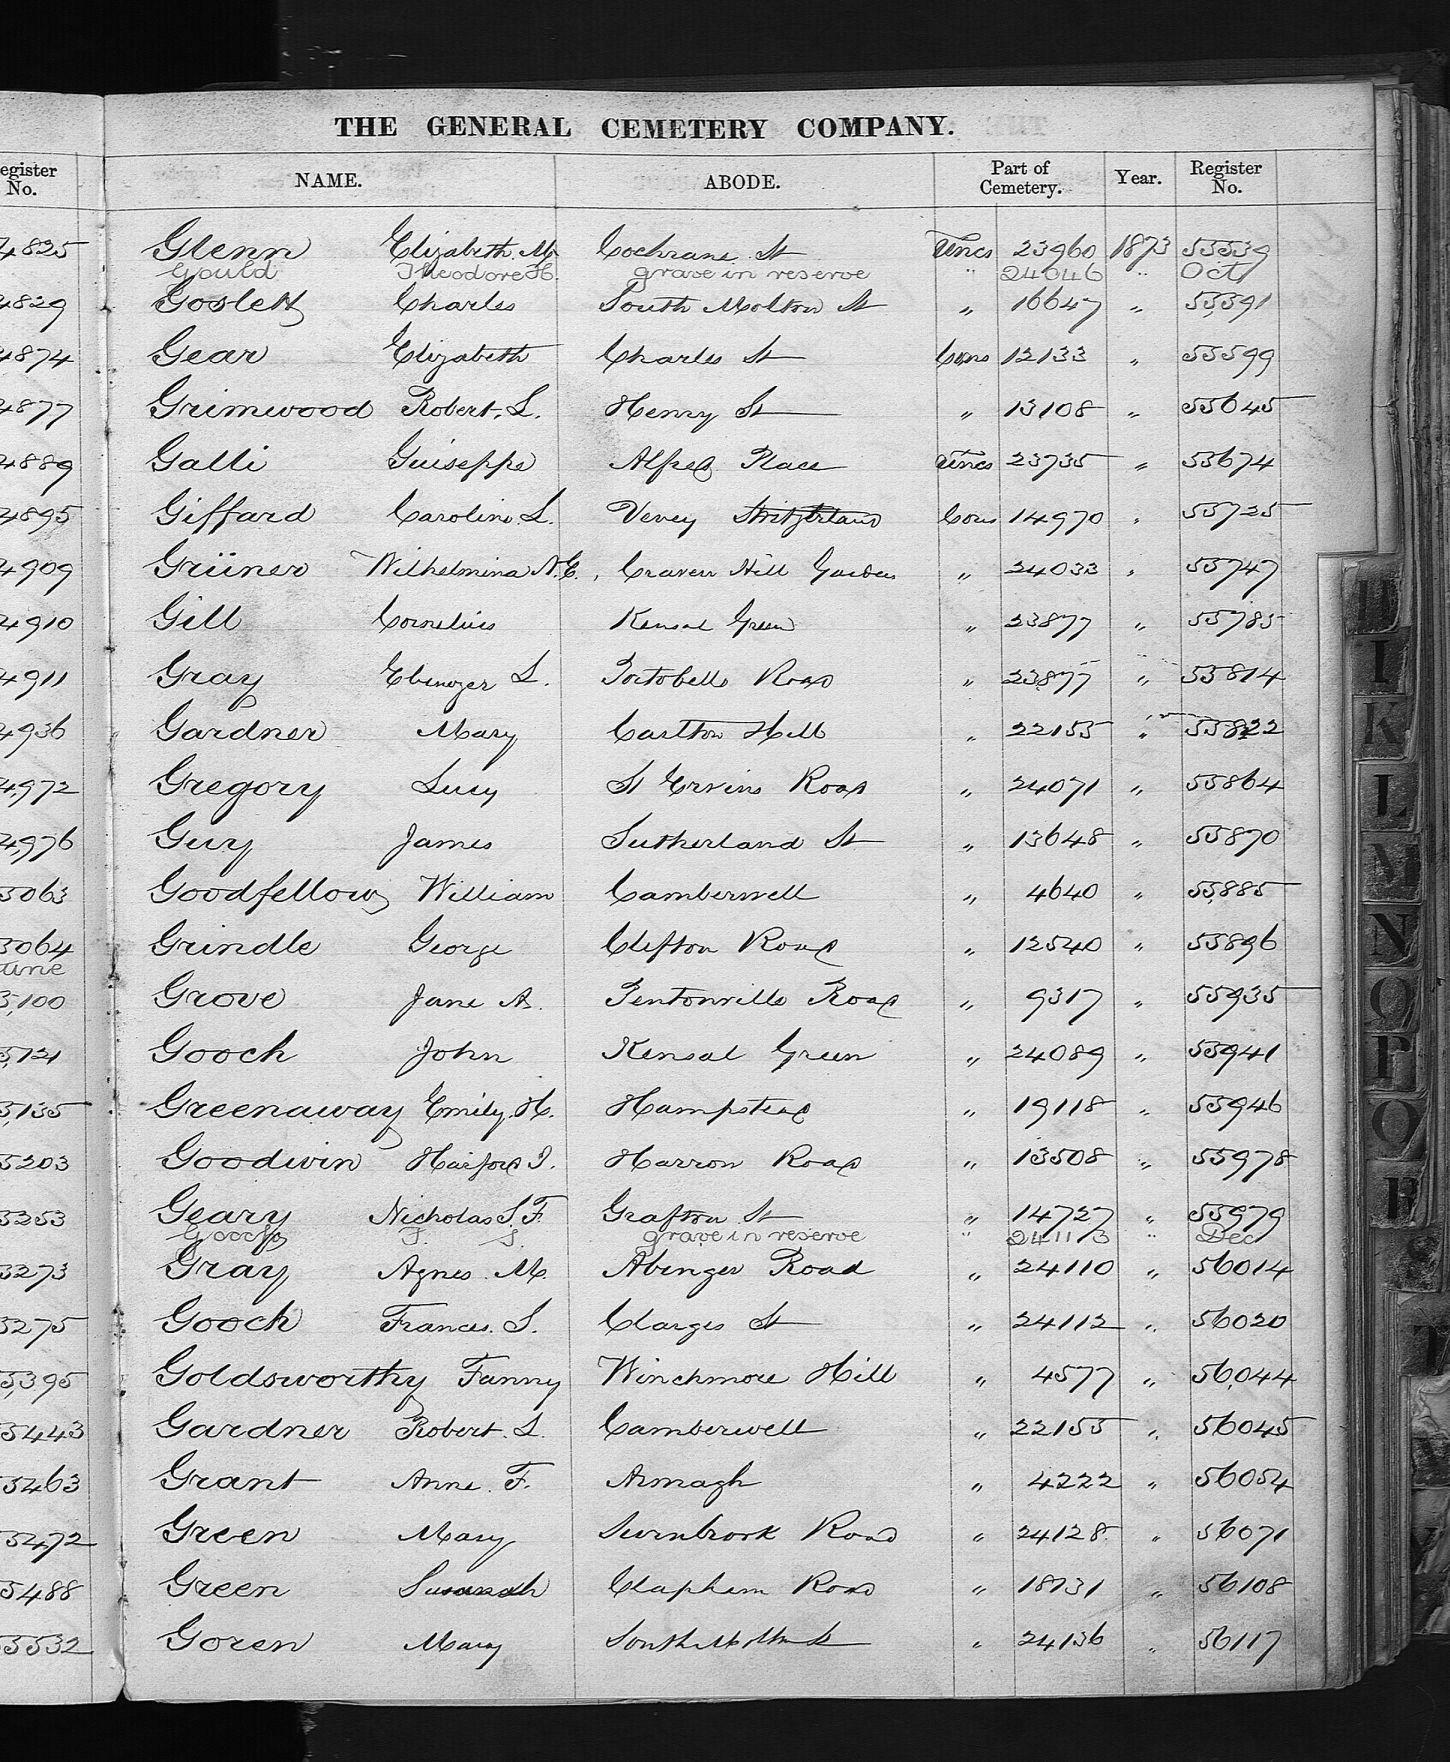 THE GENERAL CEMETERY COMPANY.
Register No. NAME. ABODE. Part of Cemetery. Year. Register No.
4825 Glenn Elizabeth. M. Cochrane St Uncs 23960 1873 55539
Gould Theodore H. grave in reserve " 24046 " Oct
4829 Goslett Charles South Molton St " 16647 " 55591
4874 Gear Elizabeth Charles St Cons 12133 " 55599
4877 Grimwood Robert. L. Henry St " 13108 " 55645
4889 Galli Guiseppe Alfred Place Uncs 23735 " 55674
4895 Giffard Caroline L. Vevey Switzerland Cons 14970 " 55725
4909 Grüner Wilhelmina N. C. Craven Hill Gardens " 24033 " 55747
4910 Gill Cornelius Kensal Green " 23877 " 55785
4911 Gray Ebenezer L. Portobello Road " 23877 " 55814
4936 Gardner Mary Carlton Hill " 22155 " 55822
4972 Gregory Lucy St Ervins Road " 24071 " 55864
4976 Guy James Sutherland St " 13648 " 55870
5063 Goodfellow William Camberwell " 4640 " 55885
5064 Grindle George Clifton Road " 12540 " 55896
June
5100 Grove Jane A. Pentonville Road " 9317 " 55935
5121 Gooch John Kensal Green " 24089 " 55941
5135 Greenaway Emily. H. Hampstead " 19118 " 55946
5203 Goodwin Harford J. Harrow Road " 13508 " 55978
5253 Geary Nicholas S. F. Grafton St " 14727 " 55979
Gooch F. S. grave in reserve " 24113 " Dec
5273 Gray Agnes. M. Abinger Road " 24110 " 56014
5275 Gooch Frances. S. Clarges St " 24112 " 56020
5395 Goldsworthy Fanny Winchmore Hill " 4577 " 56044
5443 Gardner Robert. L. Camberwell " 22155 " 56045
5463 Grant Anne. F. Armagh " 4222 " 56054
5472 Green Mary Swinbrook Road " 24128 " 56071
5488 Green Susanah Clapham Road " 18731 " 56108
5532 Goren Mary South Molton St " 24136 " 56117
H
I
K
L
M
N
O
P
Q
R
S
T